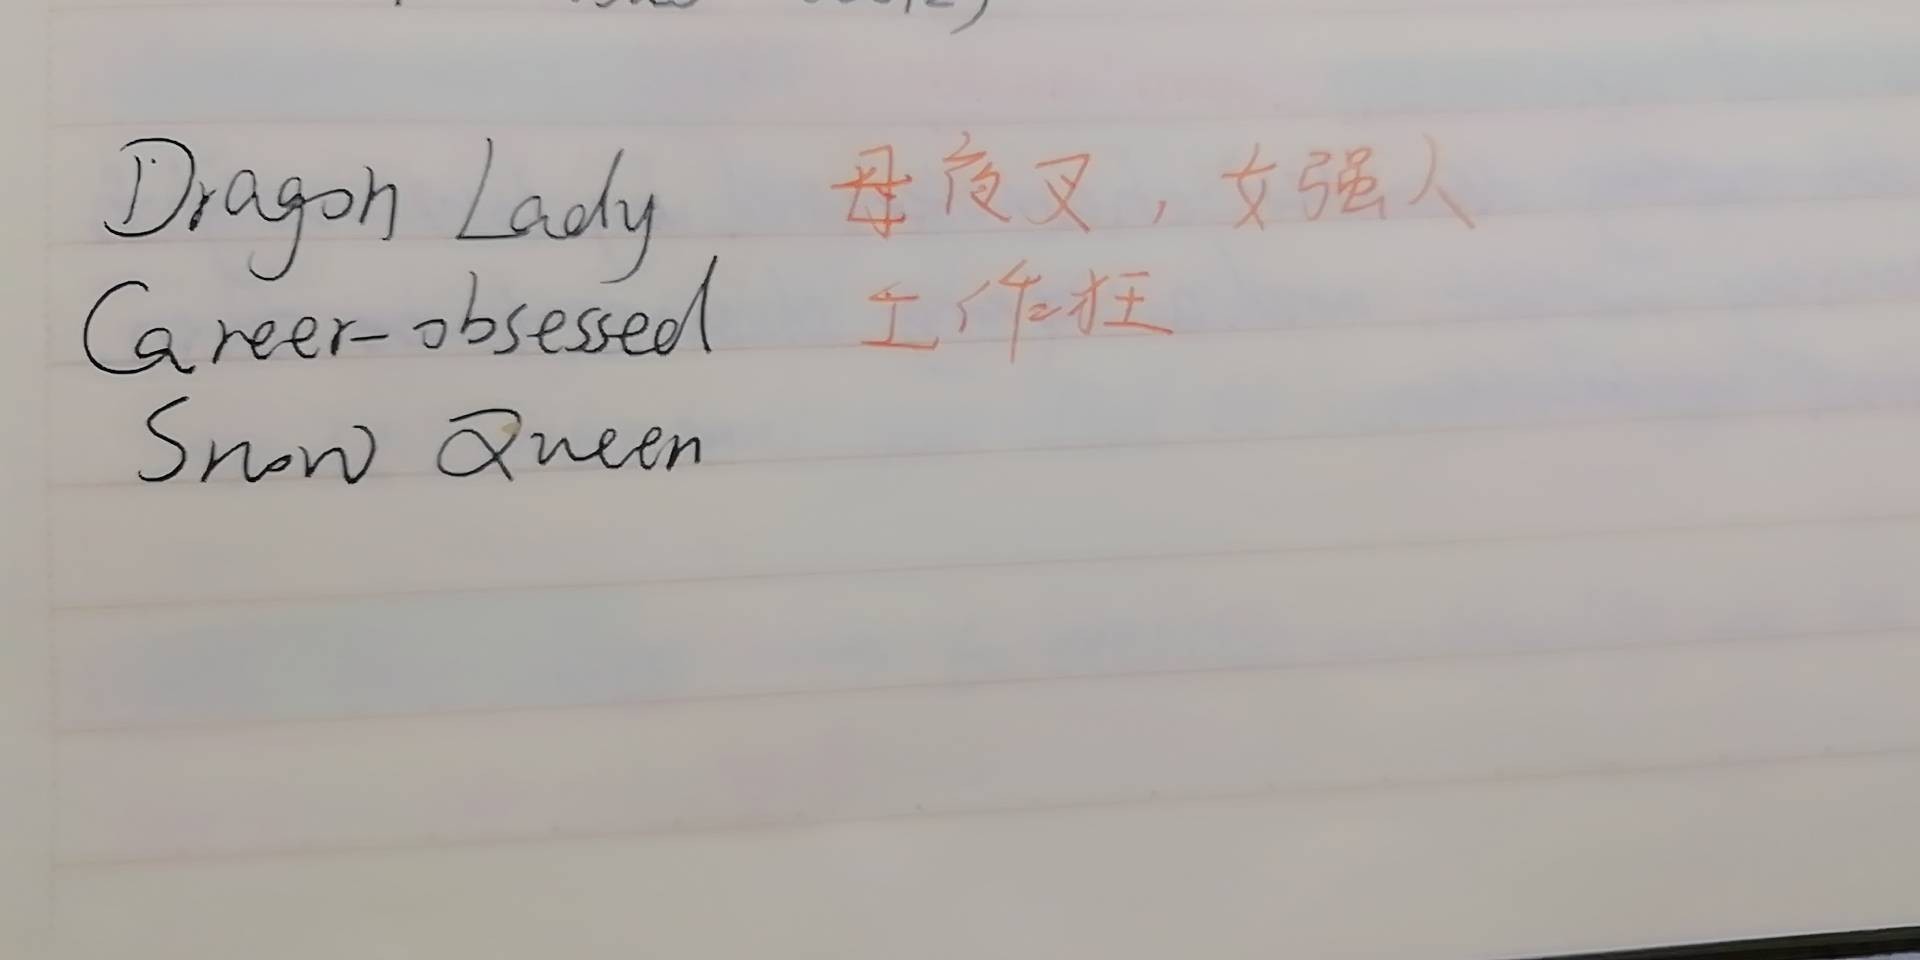 Dragon Lady 母夜叉，女强人
Career-obsessed 工作狂
Snow Queen